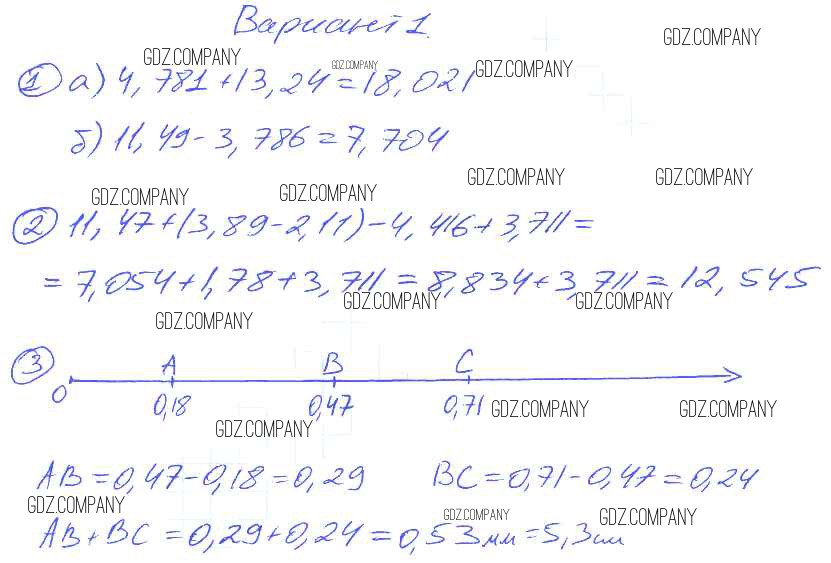 Вариант 1.
GDZ.COMPANY
GDZ.COMPANY GDZ.COMPANY GDZ.COMPANY
1 а) 4,781+13,24=18,021
б) 11,49-3,786=7,704
GDZ.COMPANY GDZ.COMPANY GDZ.COMPANY GDZ.COMPANY
2 11,47+(3,89-2,11)-4,416+3,711=
=7,054+1,78+3,711=8,834+3,711=12,545
GDZ.COMPANY GDZ.COMPANY GDZ.COMPANY
3 A B C
O 0,18 0,47 0,71 GDZ.COMPANY GDZ.COMPANY
GDZ.COMPANY
AB=0,47-0,18=0,29 BC=0,71-0,47=0,24
GDZ.COMPANY GDZ.COMPANY GDZ.COMPANY
AB+BC=0,29+0,24=0,53мм=5,3см